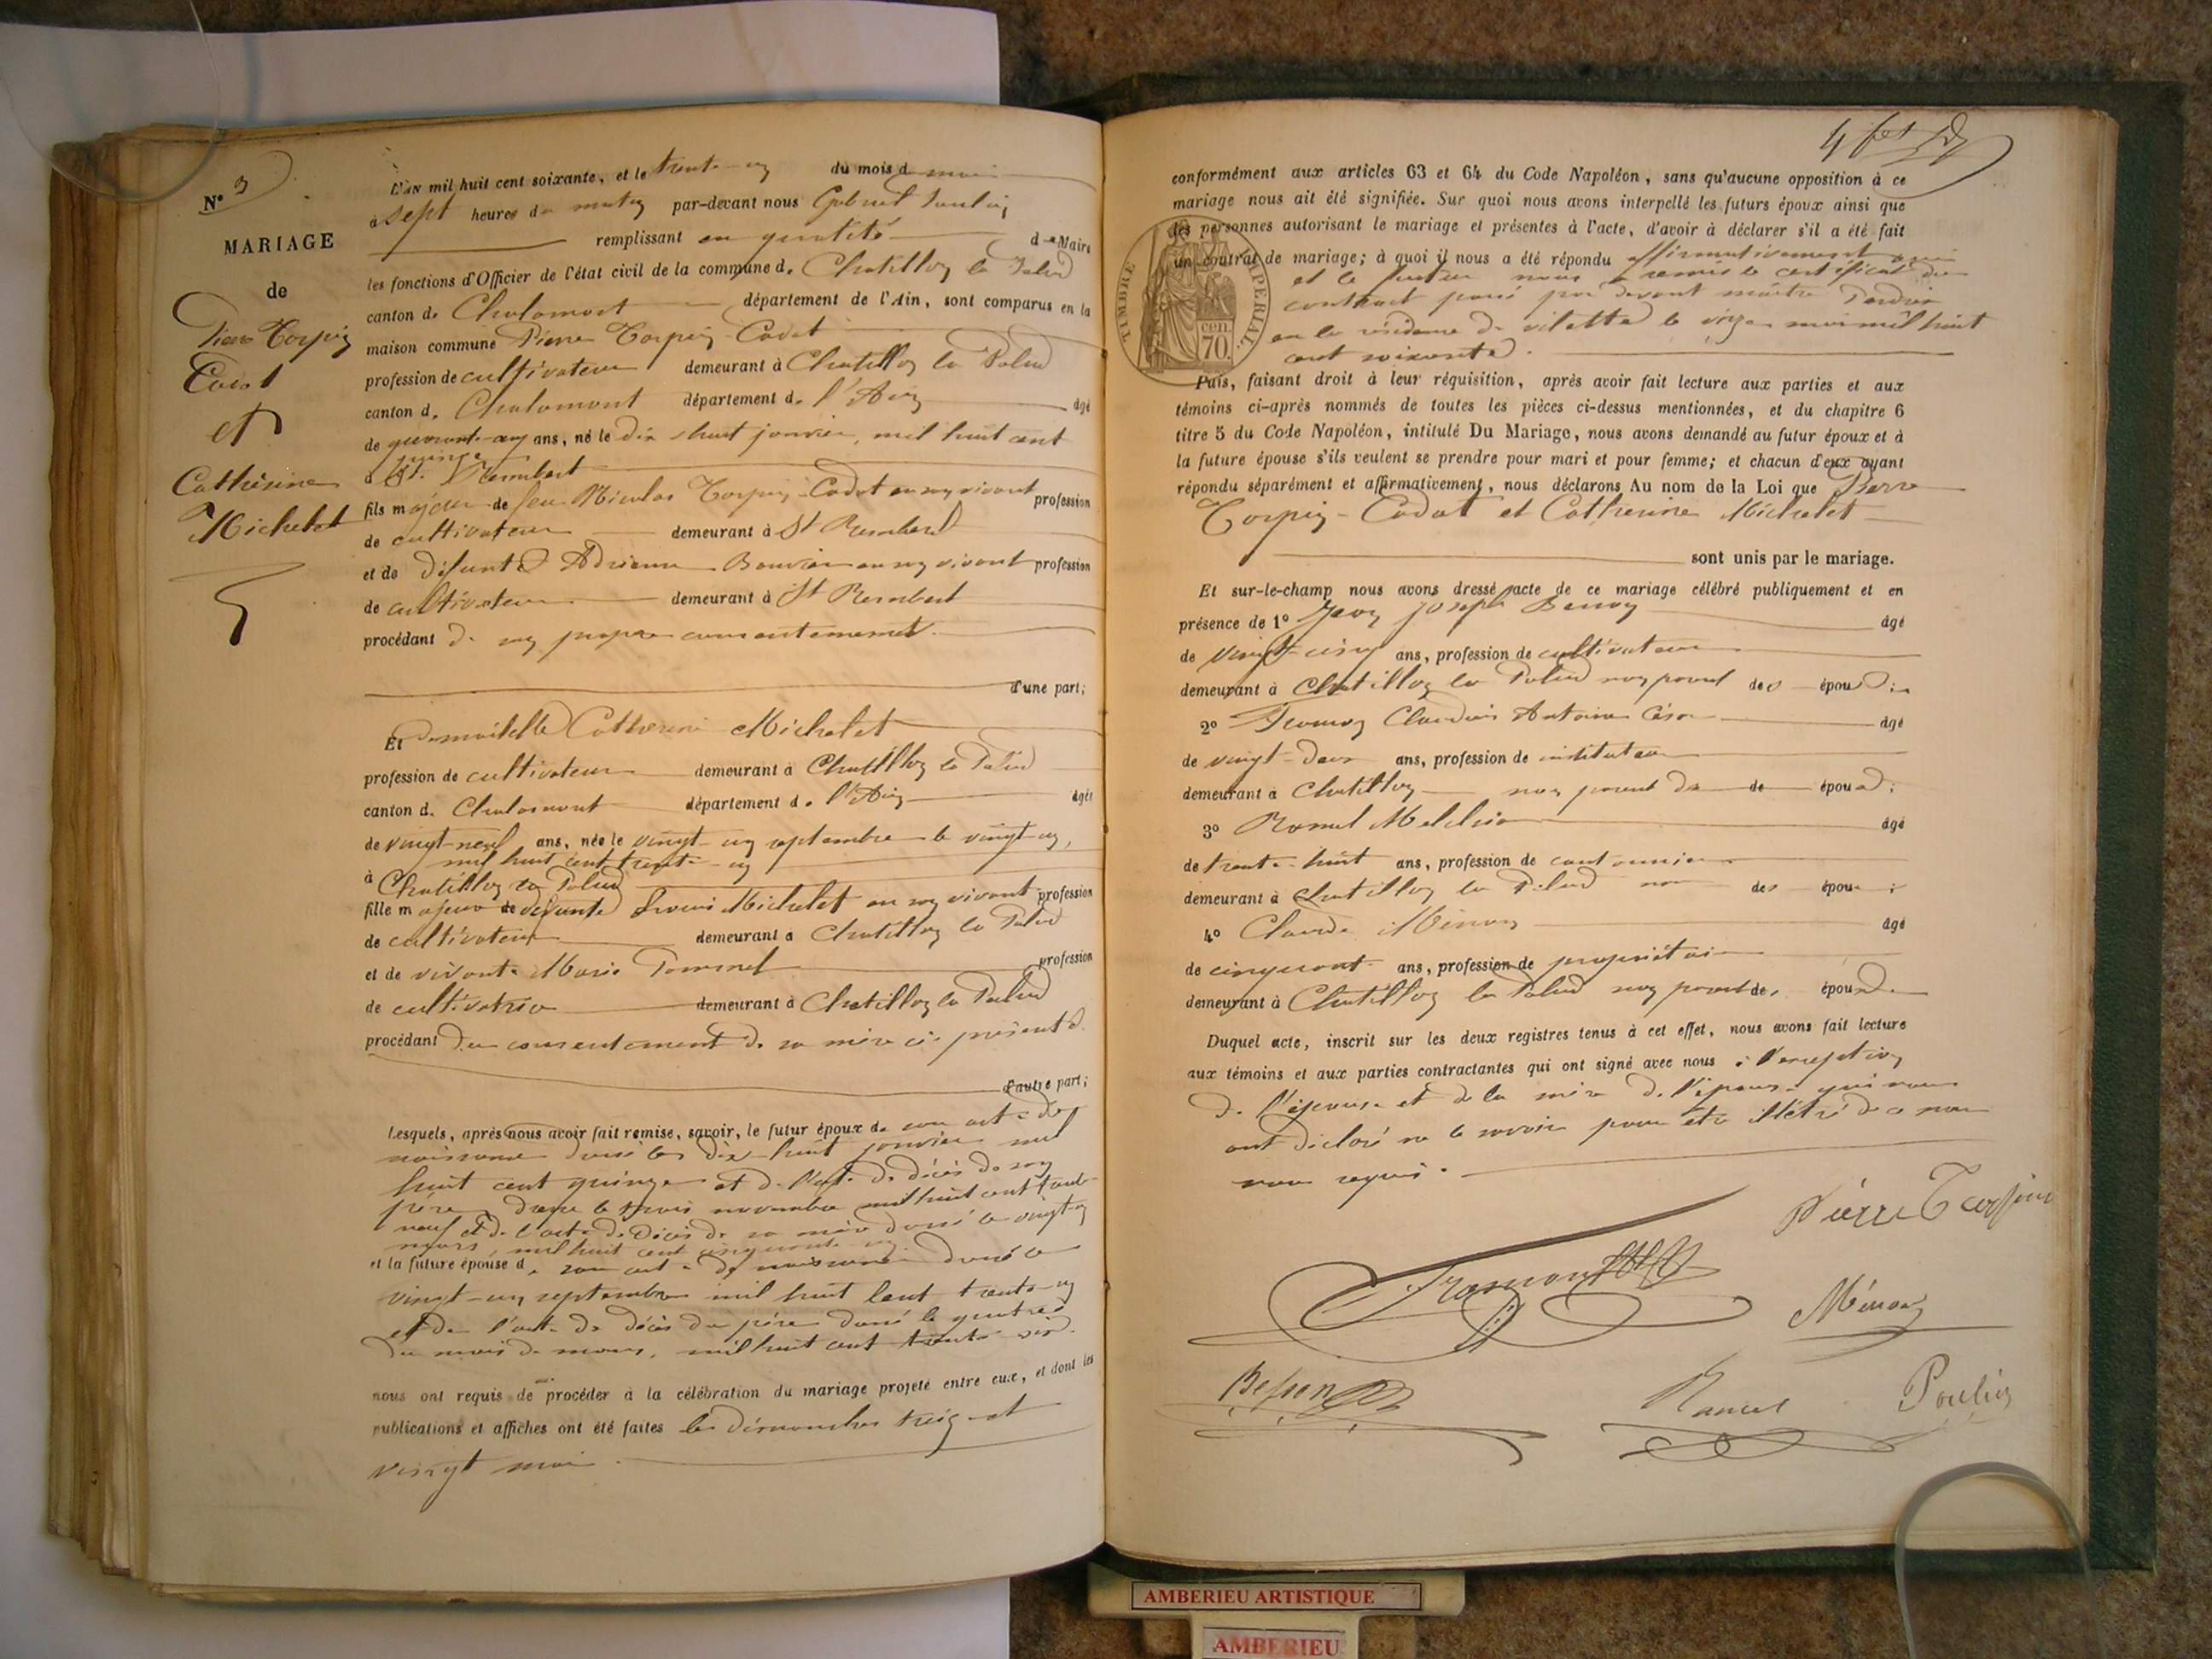 Nº 3
MARIAGE
de
Pierre Torpin
Cadot
et
Catherine
Michelet
L'AN mil huit cent soixante, et le trente-un du mois de mai
à sept heures du matin par-devant nous Gabriel Poulin
remplissant en qualité de Maire
les fonctions d'Officier de l'état civil de la commune de Chatillon la Palud
canton de Chalamont département de l'Ain, sont comparus en la
maison commune Pierre Torpin-Cadot
profession de cultivateur demeurant à Chatillon la Palud
canton de Chalamont département de l'Ain âgé
de quarante-cinq ans, né le dix-huit janvier, mil huit cent
quinze
à St. Rambert
fils majeur de feu Nicolas Torpin-Cadot en son vivant profession
de cultivateur demeurant à St Rambert
et de défunte Adrienne Bouvier en son vivant profession
de cultivateur demeurant à St Rambert
procédant de son propre consentement.
d'une part;
Et Demoiselle Catherine Michelet
profession de cultivateur demeurant à Chatillon la Palud
canton de Chalamont département de l'Ain âgée
de vingt-neuf ans, née le vingt-un septembre le vingt-un,
mil huit cent trente-un
à Chatillon la Palud
fille majeure de défunte Michelet en son vivant profession
de cultivateur demeurant à Chatillon la Palud
et de vivante Marie profession
de cultivatrice demeurant à Chatillon la Palud
procédant du consentement de sa mère ci-présente
d'autre part;
Lesquels, après nous avoir fait remise, savoir, le futur époux de son acte de
naissance dressé le dix-huit janvier mil
huit cent quinze et de l'acte de décès de son
père, dressé le trois novembre mil huit cent trente-
neuf et de l'acte de décès de sa mère donné le vingt-un
mars, mil huit cent cinquante-un.
et la future épouse de son acte de naissance donné le
vingt-un septembre mil huit cent trente-un
et de l'acte de décès du père donné le quatre
du mois de mars, mil huit cent trente-six.
nous ont requis de procéder à la célébration du mariage projeté entre eux, et dont les
publications et affiches ont été faites les dimanches treize et
vingt mai.
4
conformément aux articles 63 et 64 du Code Napoléon, sans qu'aucune opposition à ce
mariage nous ait été signifiée. Sur quoi nous avons interpellé les futurs époux ainsi que
les personnes autorisant le mariage et présentes à l'acte, d'avoir à déclarer s'il a été fait
un contrat de mariage; à quoi il nous a été répondu affirmativement
et le futur nous a remis le certificat du
contrat passé par devant maître
en la résidence de vilette le onze mai mil huit
cent soixante.
TIMBRE IMPERIAL
cen.
70.
Puis, faisant droit à leur réquisition, après avoir fait lecture aux parties et aux
témoins ci-après nommés de toutes les pièces ci-dessus mentionnées, et du chapitre 6
titre 5 du Code Napoléon, intitulé Du Mariage, nous avons demandé au futur époux et à
la future épouse s'ils veulent se prendre pour mari et pour femme; et chacun d'eux ayant
répondu séparément et affirmativement, nous déclarons Au nom de la Loi que Pierre
Torpin-Cadot et Catherine Michelet
sont unis par le mariage.
Et sur-le-champ nous avons dressé acte de ce mariage célébré publiquement et en
présence de 1º Jean Joseph âgé
de vingt-cinq ans, profession de cultivateur
demeurant à Chatillon la Palud non parent des époux;
2º Claudius Antoine César âgé
de vingt-deux ans, profession de instituteur
demeurant à Chatillon non parent de époux;
3º Rancel Melchior âgé
de trente-huit ans, profession de cantonnier
demeurant à Chatillon la Palud non des époux;
4º Claude Minon âgé
de cinquante ans, profession de propriétaire
demeurant à Chatillon la Palud non parent des époux.
Duquel acte, inscrit sur les deux registres tenus à cet effet, nous avons fait lecture
aux témoins et aux parties contractantes qui ont signé avec nous à l'exception
de l'épouse et de la mère de l'épouse qui nous
ont déclaré ne le savoir pour être illétré de ce
requis.
Pierre Torpin
Minon
Rancel
Poulin
AMBERIEU ARTISTIQUE
AMBERIEU